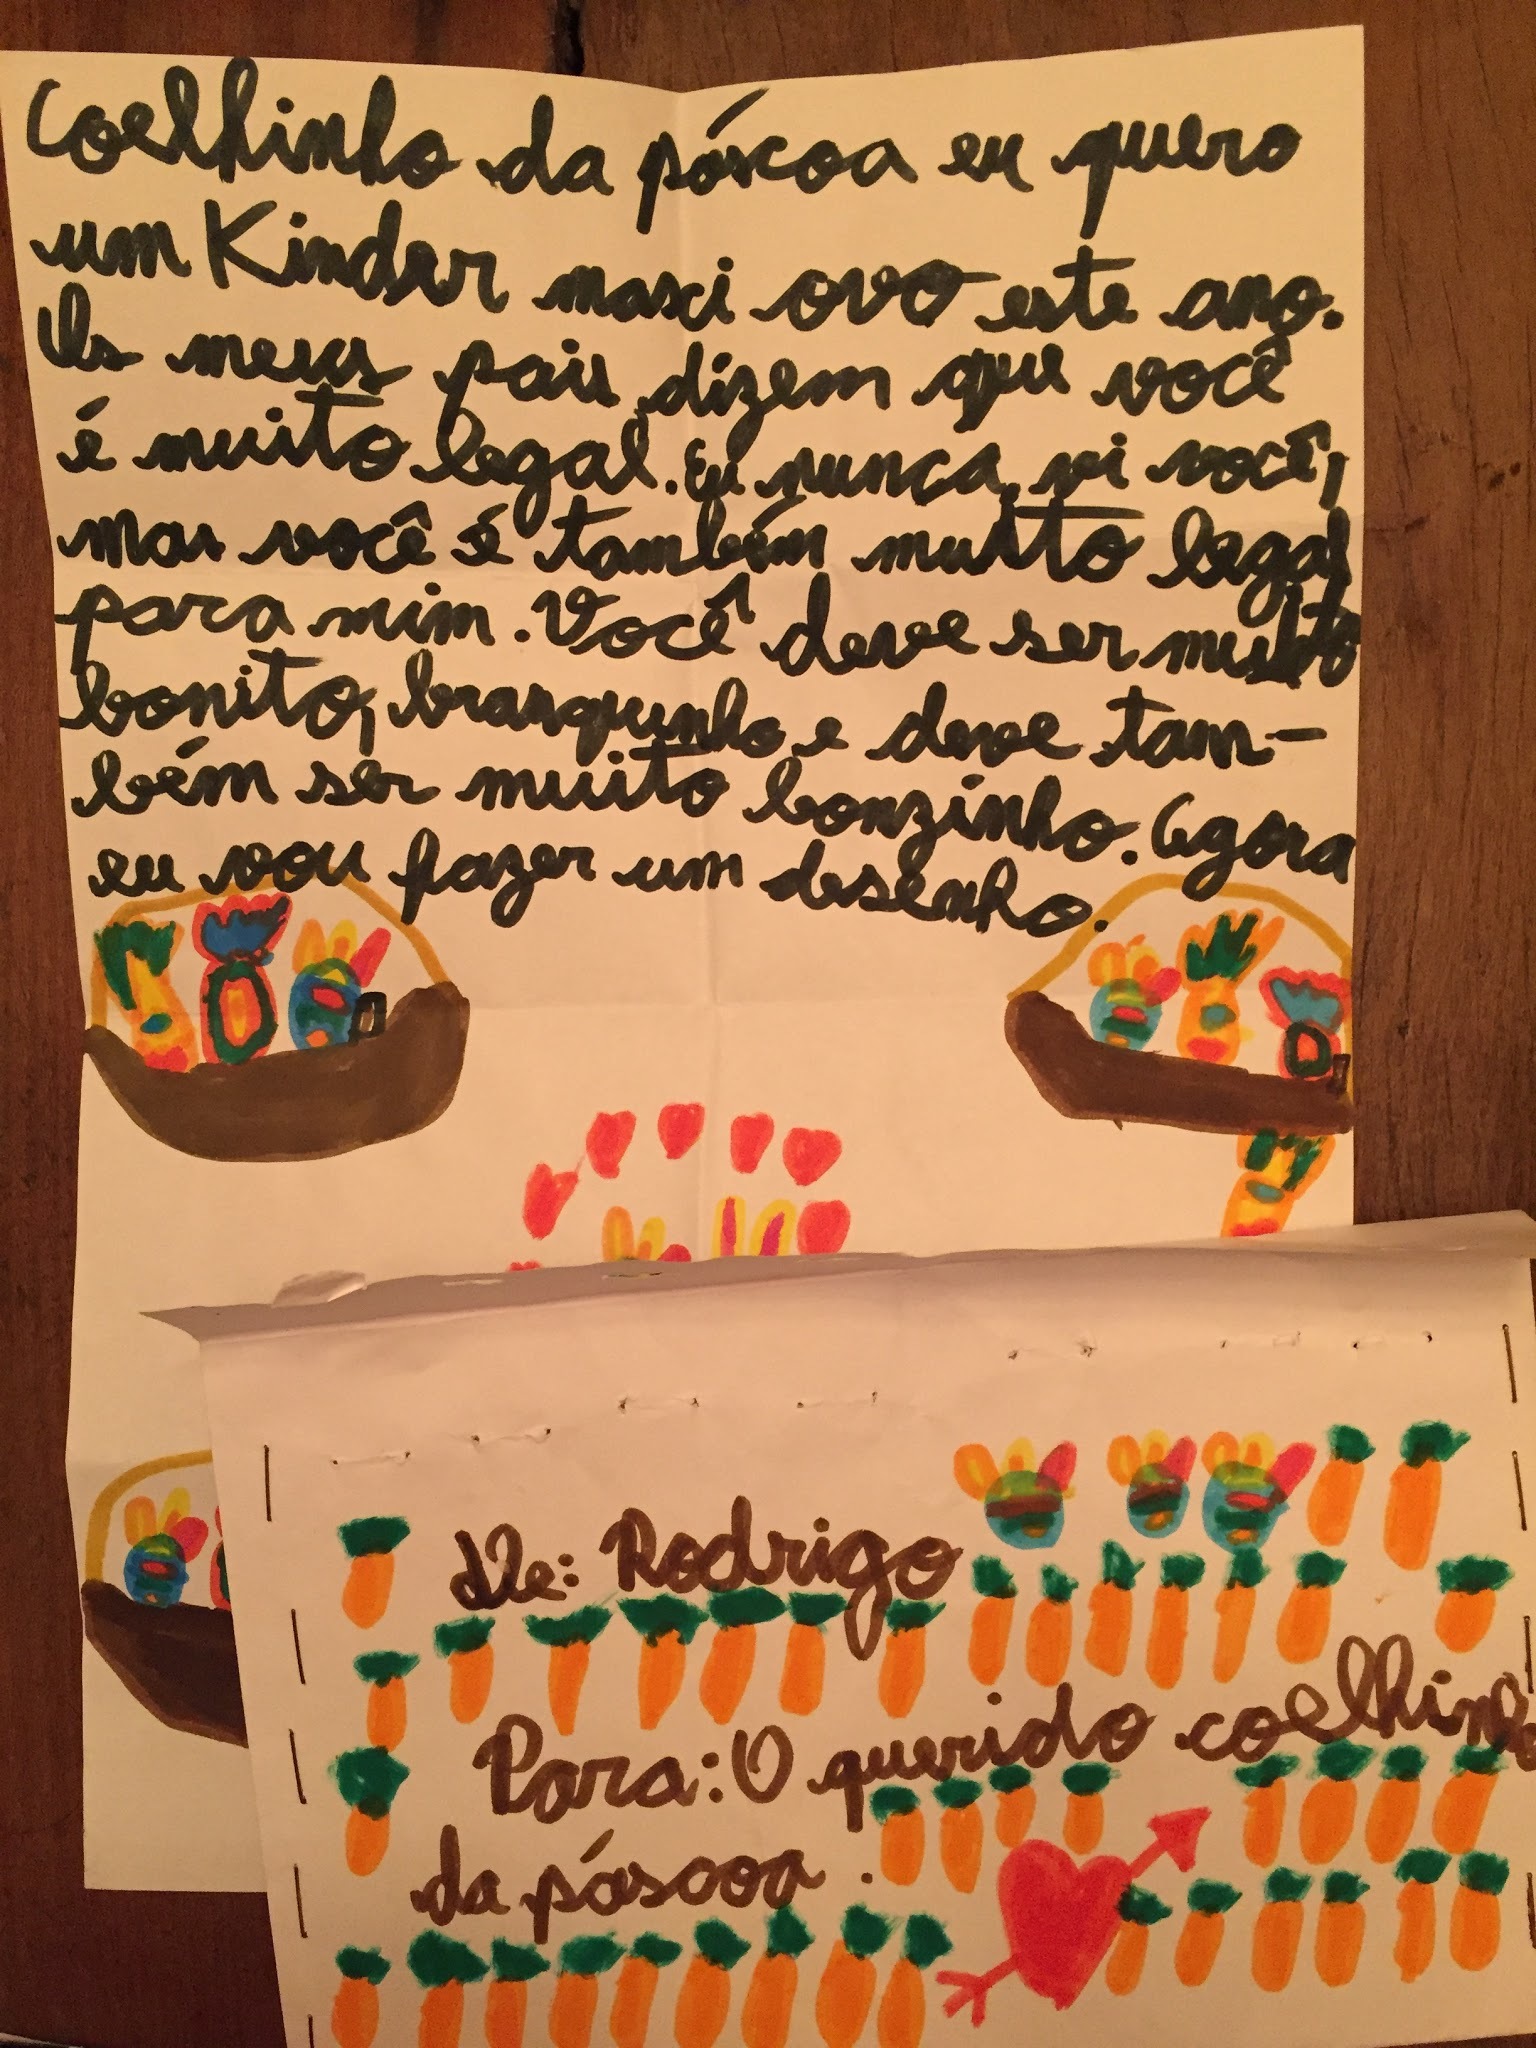 Coelhinho da páscoa eu quero
um Kinder maxi ovo este ano.
Os meus pais dizem que você
é muito legal. Eu nunca vi você,
mas você é também muito legal
para mim. Você deve ser muito
bonito, branquinho e deve tam-
bém ser muito bonzinho. Agora
eu vou fazer um desenho.
De: Rodrigo
Para: O querido coelhinho
da páscoa.